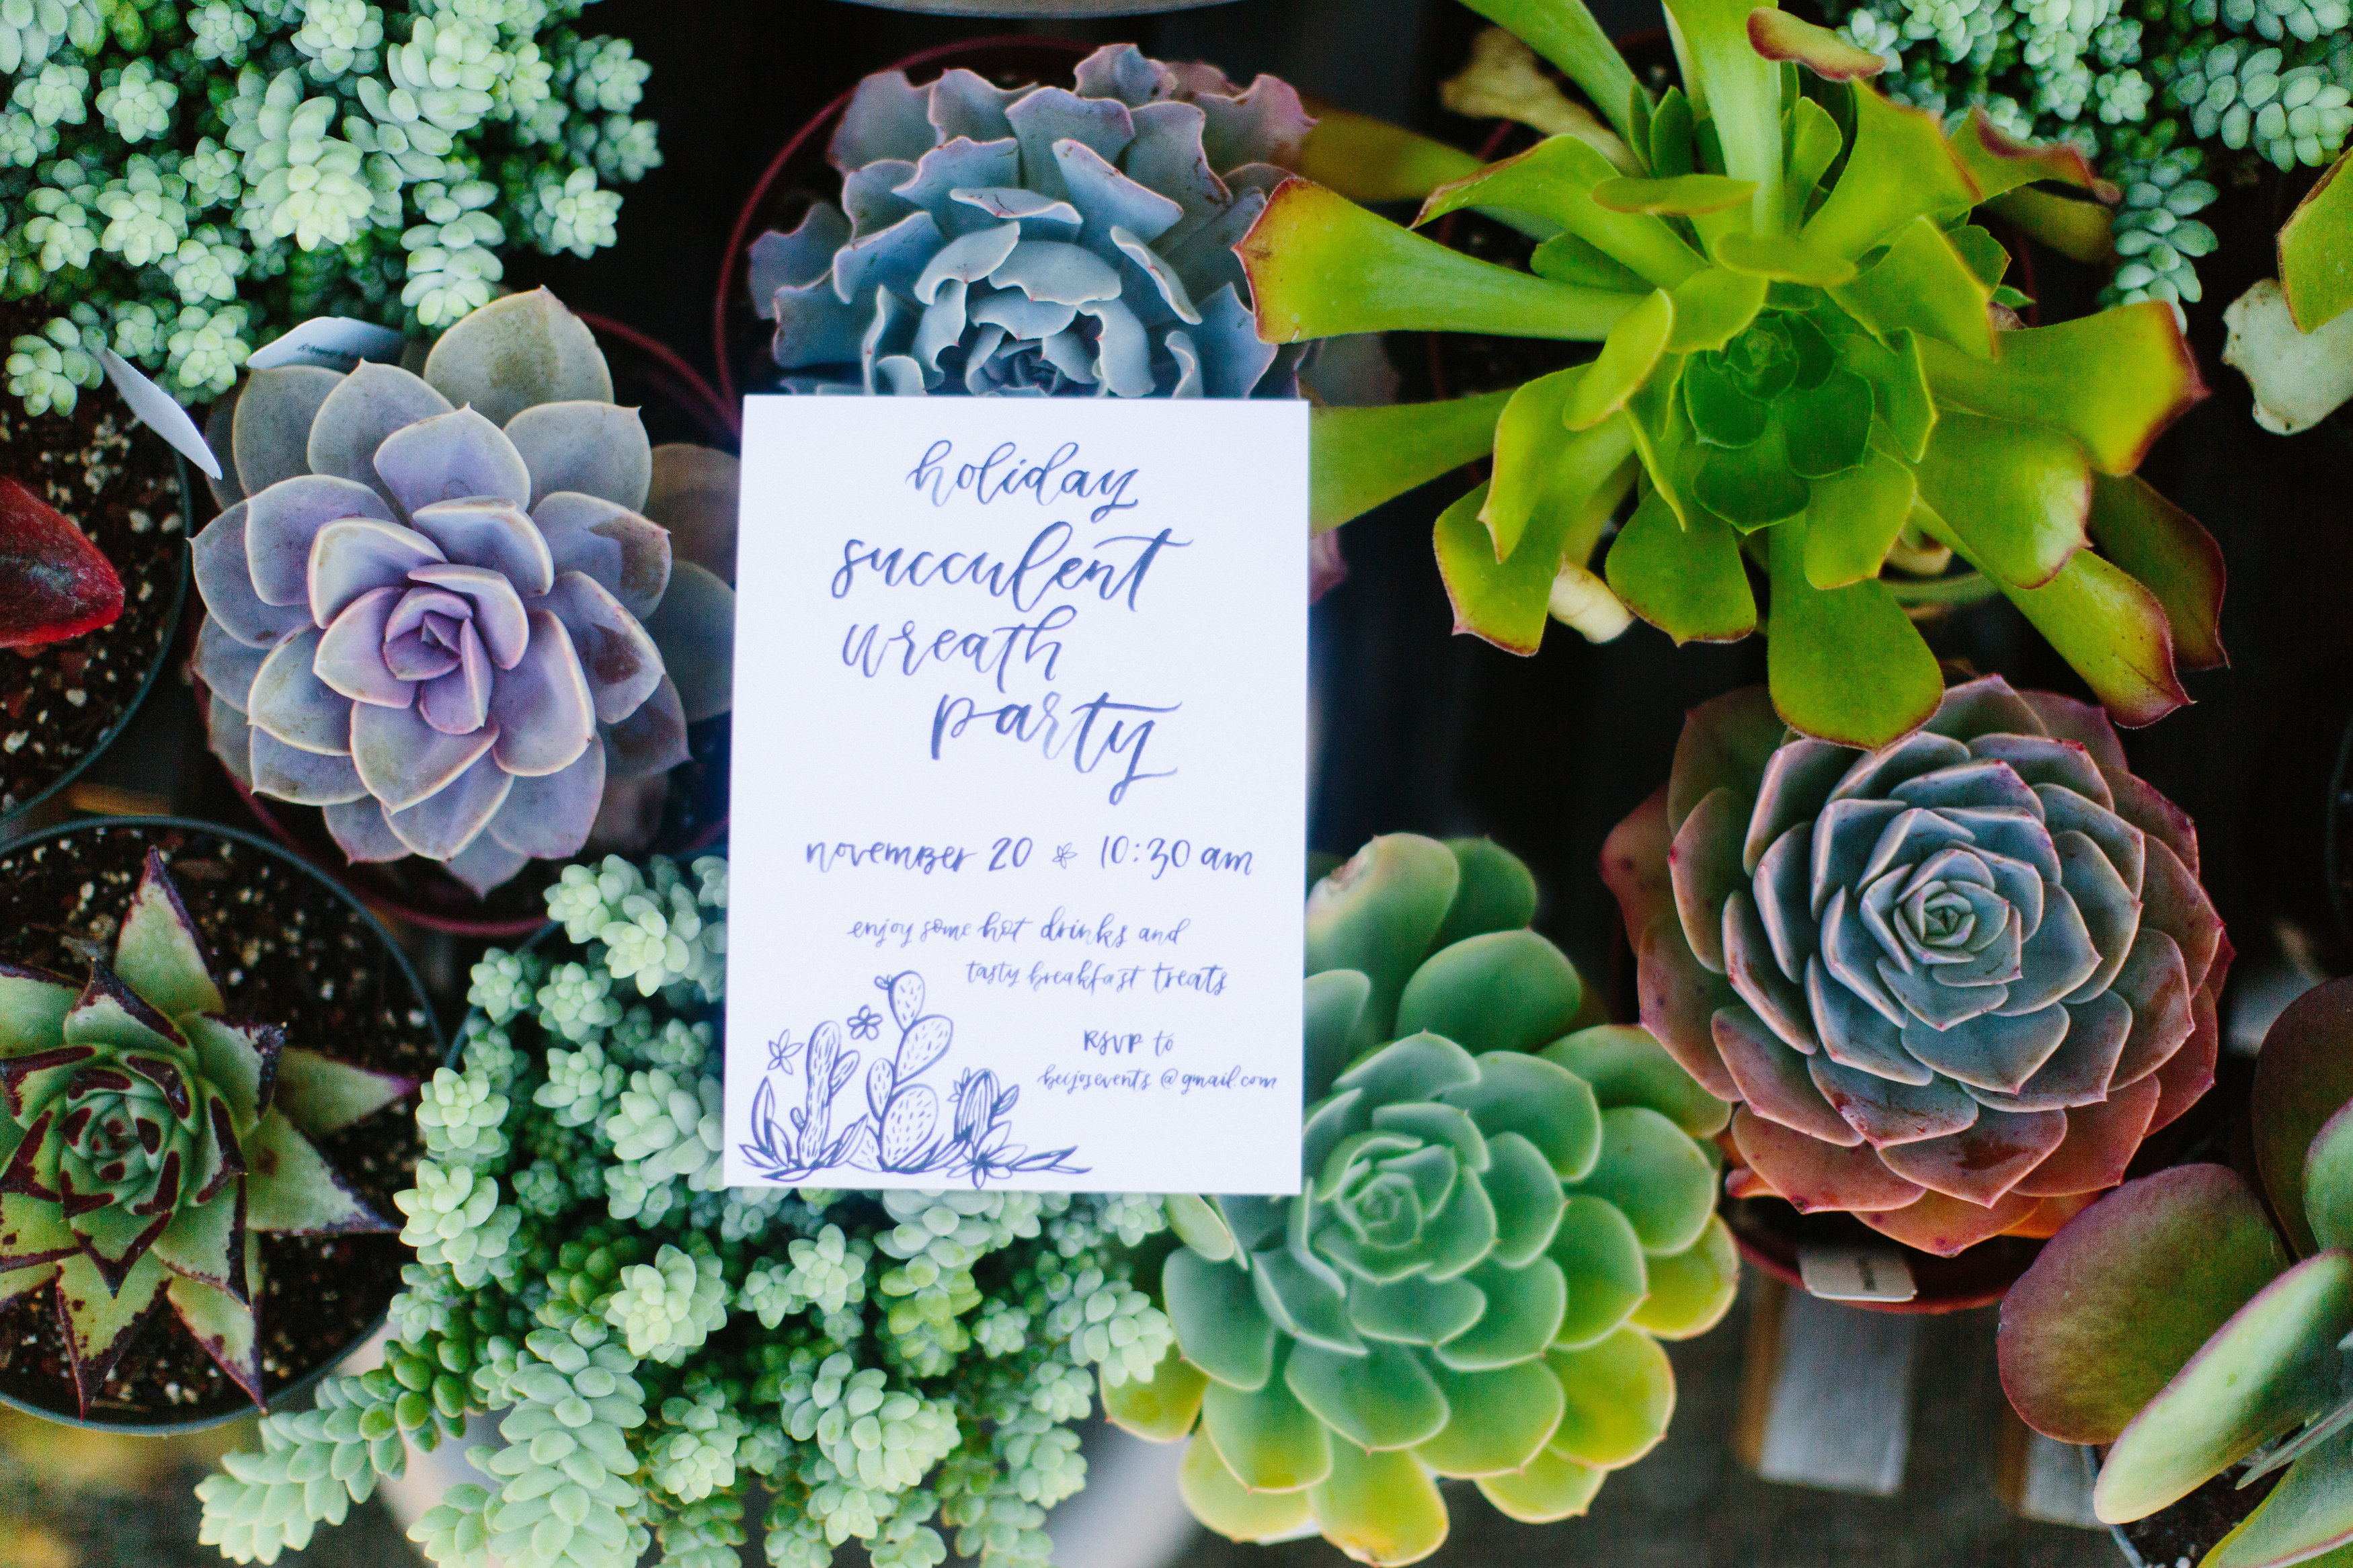 holiday
succulent
wreath
party
november 20 10:30 am
enjoy some hot drinks and
tasty breakfast treats
RSVP to
beijosevents @gmail.com